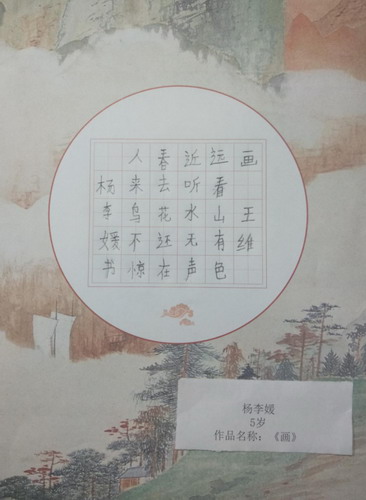 画 王维
远看山有色
近听水无声
春去花还在
人来鸟不惊
杨李媛书
杨李媛
5岁
作品名称：《画》